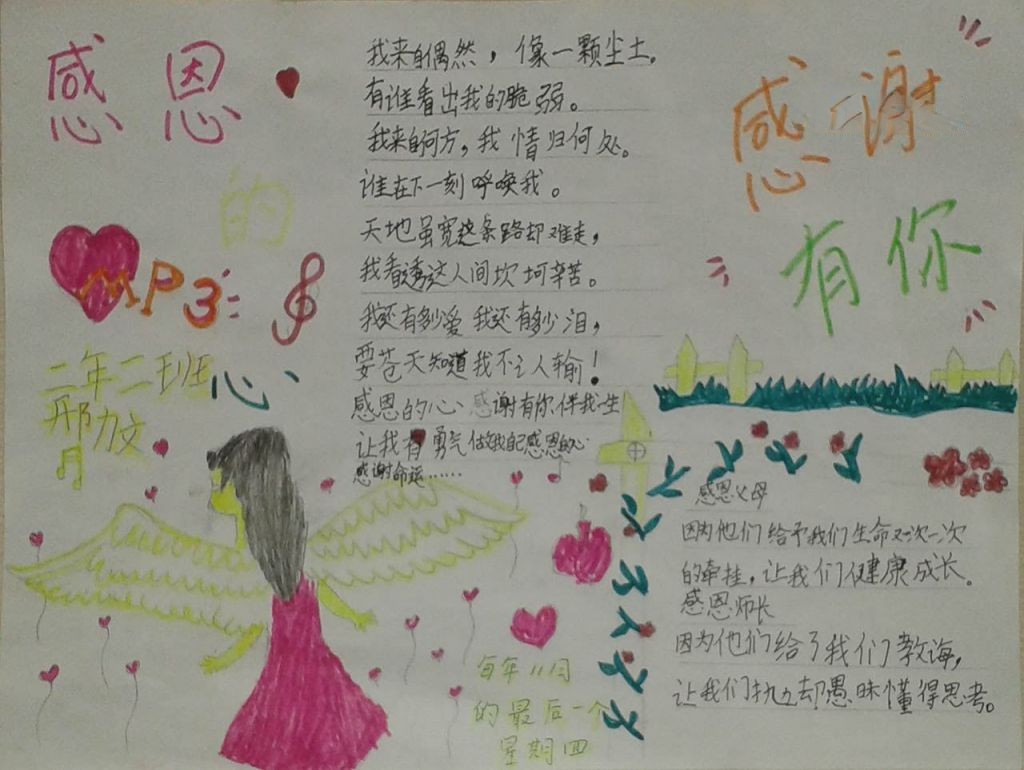 感恩
的
心
MP3:
二年二班
邢文
我来自偶然，像一颗尘土。
有谁看出我的脆弱。
我来自何方，我情归何处。
谁在下一刻呼唤我。
天地虽宽这条路却难走，
我看透这人间坎坷辛苦。
我还有多少爱我还有多少泪，
要苍天知道我不讠人输！
感恩的心感谢有你伴我一生
让我有勇气做我的感恩的心
感谢命运……
感谢
有你
感恩父母
因为他们给予我们生命又一次一次
的牵挂，让我们健康成长。
感恩师长
因为他们给了我们教诲，
让我们抛却愚昧懂得思考。
每年11月
的最后一个
星期四